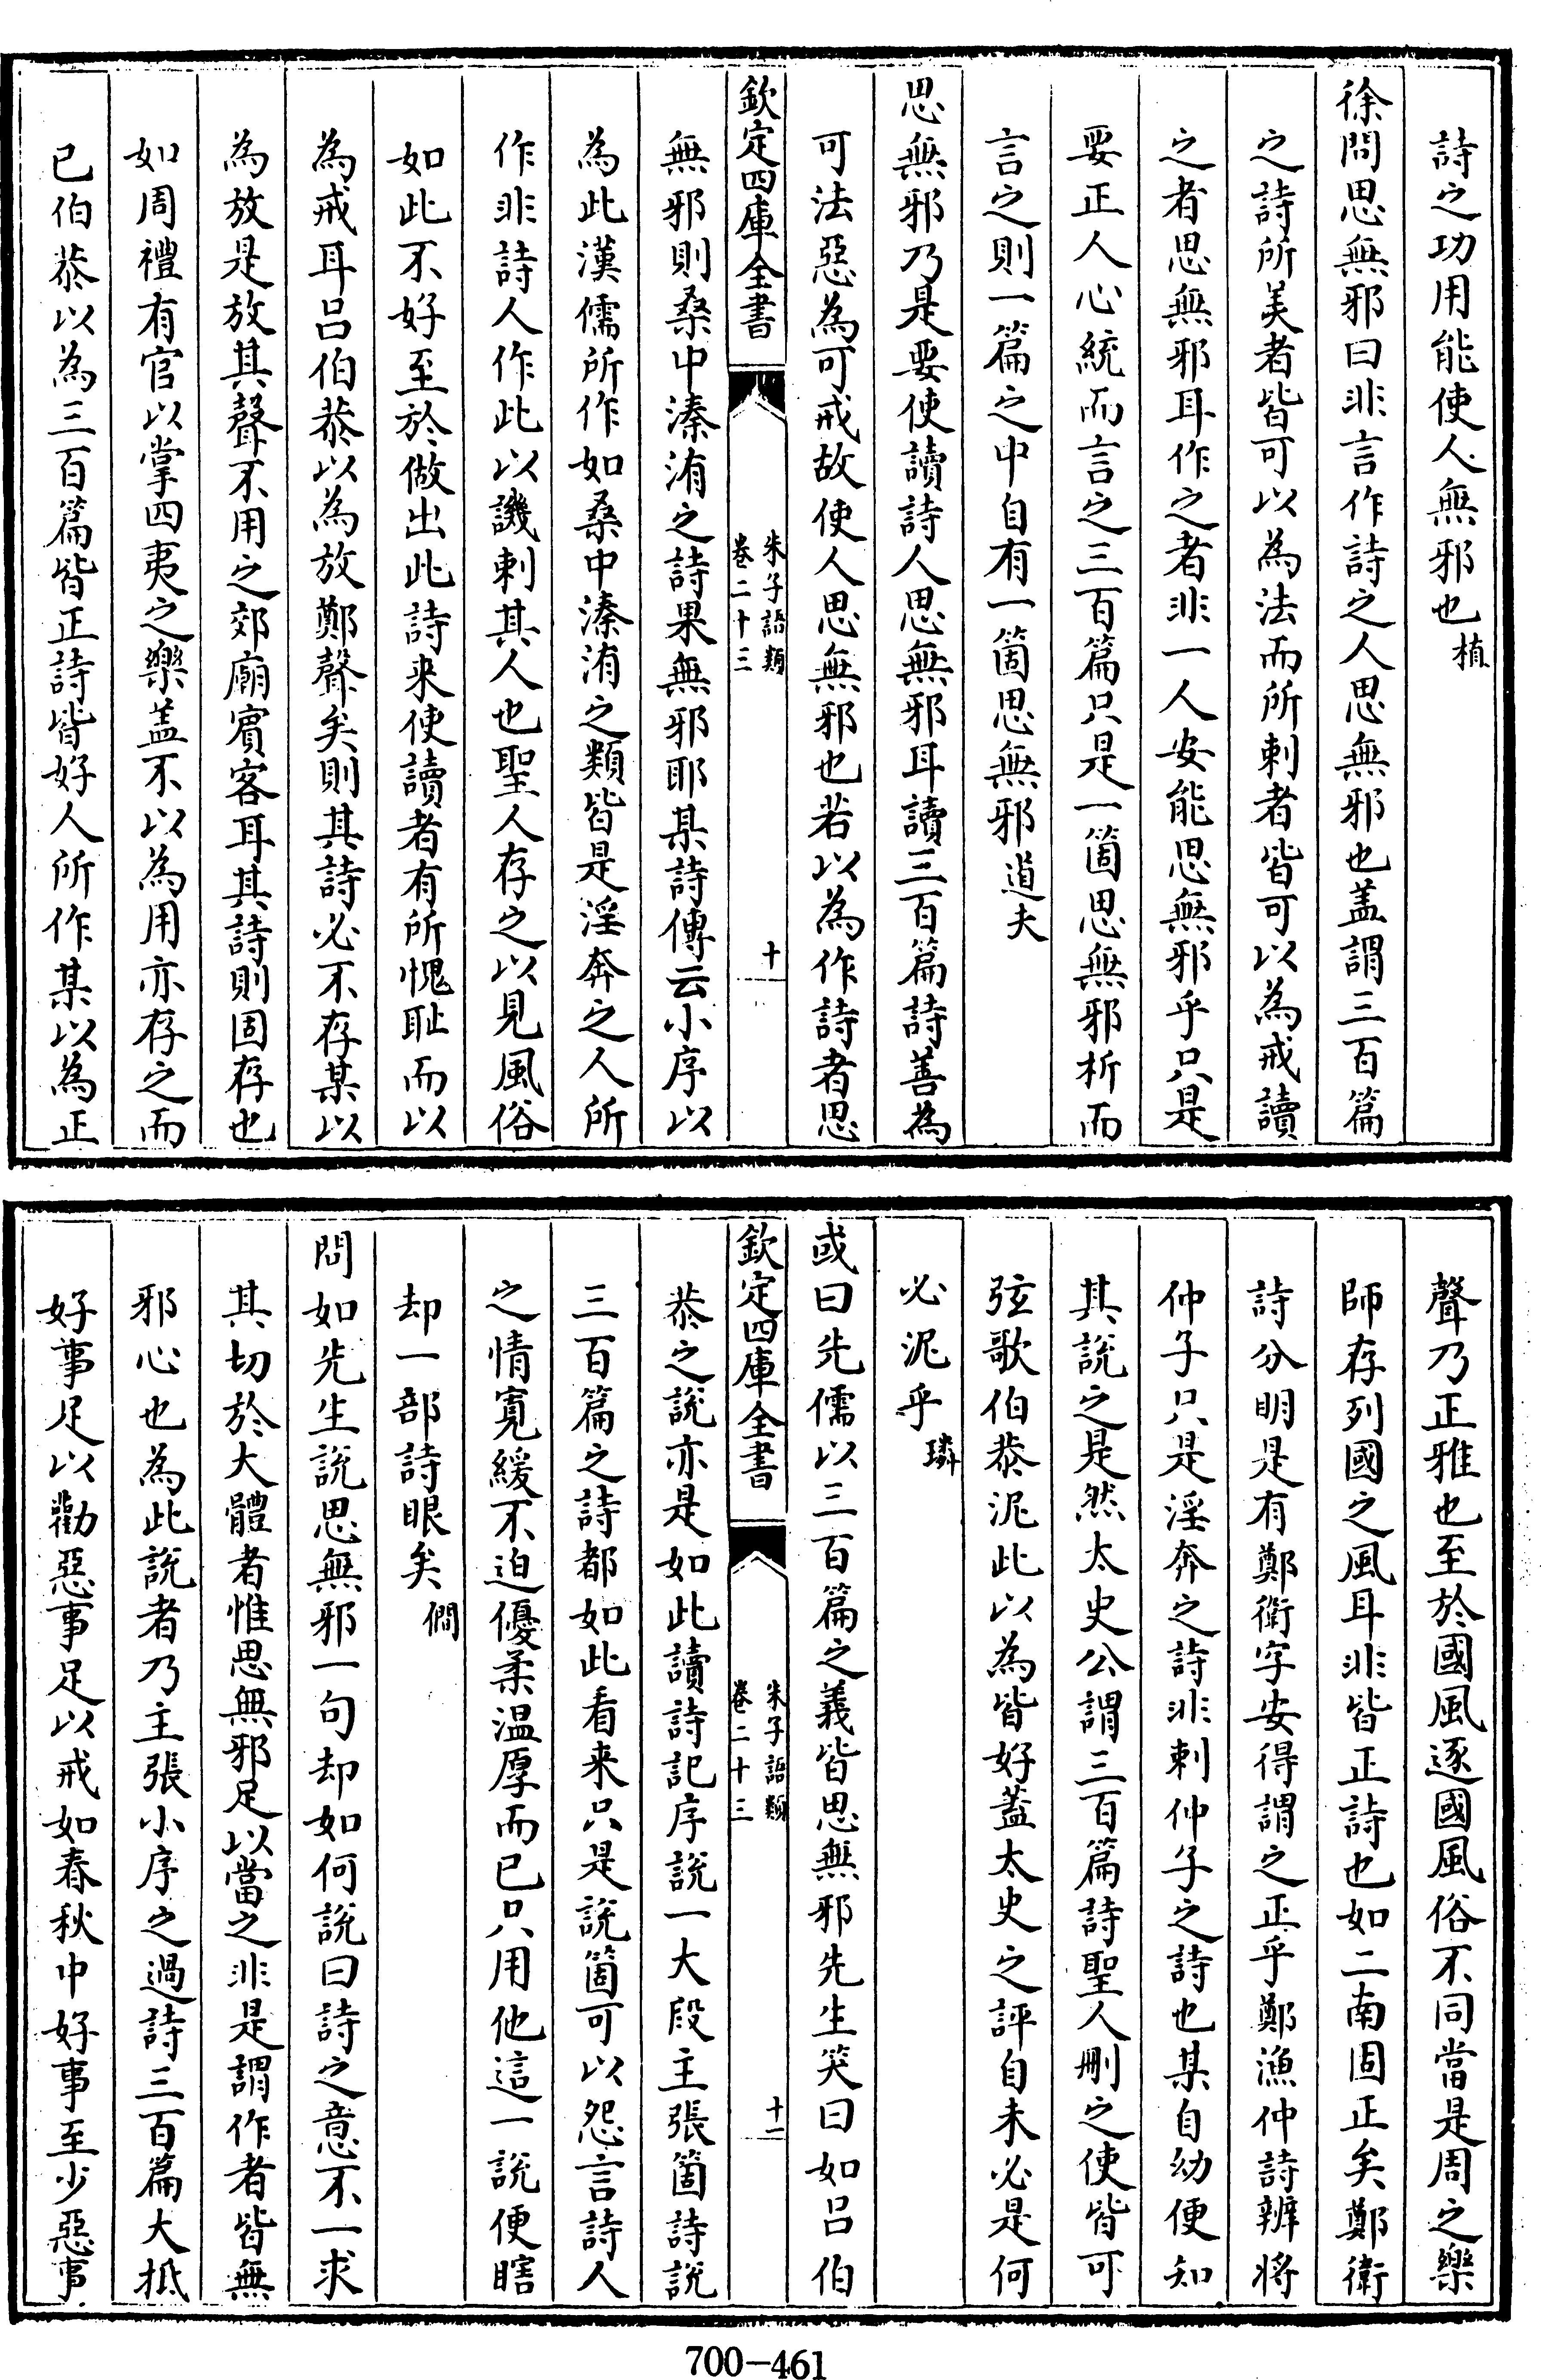 詩之功用能使人無邪也植
徐問思無邪曰非言作詩之人思無邪也盖謂三百篇
之詩所美者皆可以為法而所刺者皆可以為戒讀
之者思無邪耳作之者非一人安能思無邪乎只是
要正人心統而言之三百篇只是一箇思無邪析而
言之則一篇之中自有一箇思無邪道夫
思無邪乃是要使讀詩人思無邪耳讀三百篇詩善為
可法惡為可戒故使人思無邪也若以為作詩者思
欽定四庫全書
朱子語類
卷二十三
十
無邪則桑中溱洧之詩果無邪耶某詩傳云小序以
為此漢儒所作如桑中溱洧之類皆是淫奔之人所
作非詩人作此以譏刺其人也聖人存之以見風俗
如此不好至於做出此詩来使讀者有所愧耻而以
為戒耳呂伯恭以為放鄭聲矣則其詩必不存某以
為放是放其聲不用之郊廟賓客耳其詩則固存也
如周禮有官以掌四夷之樂盖不以為用亦存之而
已伯恭以為三百篇皆正詩皆好人所作某以為正
聲乃正雅也至於國風逐國風俗不同當是周之樂
師存列國之風耳非皆正詩也如二南固正矣鄭衛
詩分明是有鄭衛字安得謂之正乎鄭漁仲詩辨將
仲子只是淫奔之詩非刺仲子之詩也某自幼便知
其說之是然太史公謂三百篇詩聖人刪之使皆可
弦歌伯恭泥此以為皆好蓋太史之評自未必是何
必泥乎璘
或曰先儒以三百篇之義皆思無邪先生笑曰如呂伯
欽定四庫全書
朱子語類
卷二十三
十一
恭之說亦是如此讀詩記序說一大段主張箇詩說
三百篇之詩都如此看来只是說箇可以怨言詩人
之情寬緩不迫優柔温厚而已只用他這一說便瞎
却一部詩眼矣僩
問如先生說思無邪一句却如何說曰詩之意不一求
其切於大體者惟思無邪足以當之非是謂作者皆無
邪心也為此說者乃主張小序之過詩三百篇大抵
好事足以勸惡事足以戒如春秋中好事至少惡事
700-461